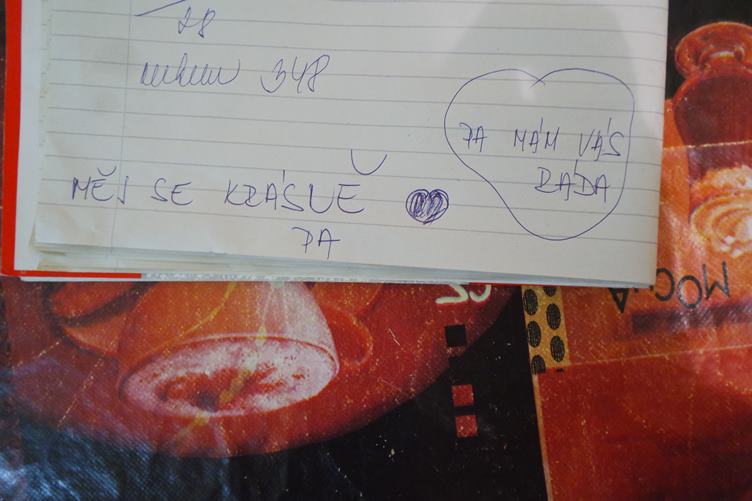 28
348
PA MÁM VÁS
RÁDA
MĚJ SE KRÁSNĚ
PA
MOCHA